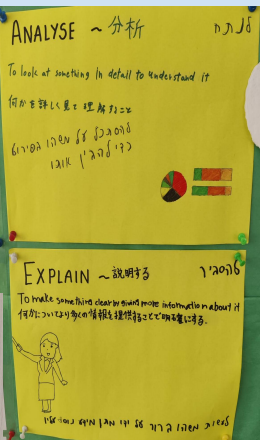 ANALYSE ~ 分析 לנתח
To look at something in detail to understand it
何かを詳しく見て理解すること
להסתכל על משהו בפירוט
כדי להבין אותו
EXPLAIN ~ 説明する להסביר
To make something clear by giving more information about it
何かについてより多くの情報を提供することで明確にする.
לעשות משהו ברור על ידי מתן מידע נוסף עליו